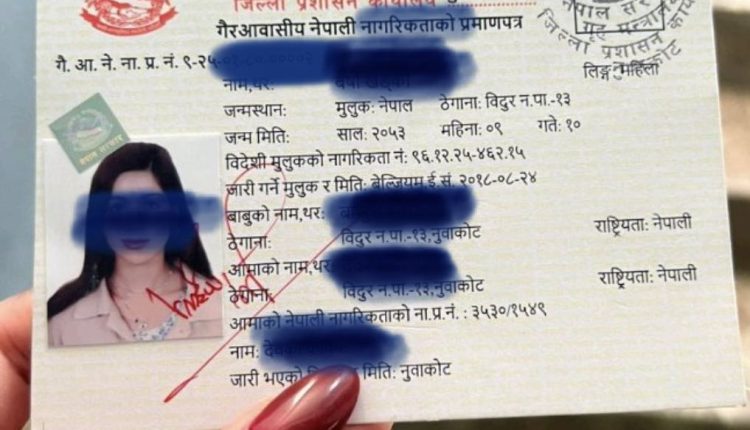 जिल्ला प्रशासन कार्यालय
नेपाल सरकार
गृह मन्त्रालय
जिल्ला प्रशासन कार्यालय
नुवाकोट
गैरआवासीय नेपाली नागरिकताको प्रमाणपत्र
गै. आ. ने. ना. प्र. नं. ९-२५
लिङ्ग महिला
नाम,थर:
जन्मस्थान: मुलुक: नेपाल ठेगाना: विदुर न.पा.-१३
जन्म मिति: साल: २०५३ महिना: ०९ गते: १०
विदेशी मुलुकको नागरिकता नं: ९६.१२.२५-४६२.१५
जारी गर्ने मुलुक र मिति: बेल्जियम ई.सं. २०१८-०८-२४
बाबुको नाम,थर:
ठेगाना: विदुर न.पा.-१३,नुवाकोट राष्ट्रियता: नेपाली
आमाको नाम,थर
ठेगाना: विदुर न.पा.-१३,नुवाकोट राष्ट्रियता: नेपाली
आमाको नेपाली नागरिकताको ना.प्र.नं. : ३५३०/१५४९
नाम:
जारी भएको मिति: नुवाकोट